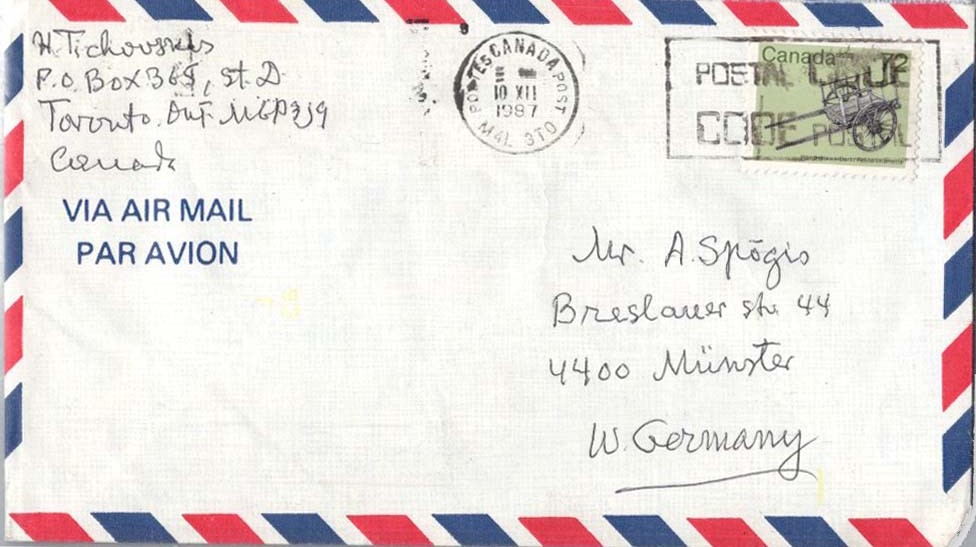 H. Tichovskis
P.O. Box 365, St. D
Toronto. Ont. M6P 3J9
Canada
VIA AIR MAIL
PAR AVION
POSTES CANADA POST
10 XII
1987
M4L 3T0
POSTAL CODE
CODE POSTAL
Canada 72
Mr. A. Spōģis
Breslauer str. 44
4400 Münster
W. Germany